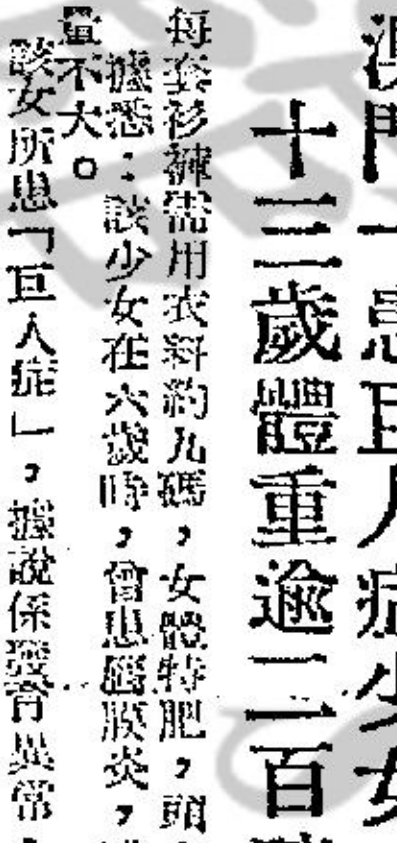 澳門一患巨人病少女
十三歲體重逾二百
每套衫褲需用衣料約九碼，女體特肥，頭
據悉：該少女在六歲時，曾患腦膜炎，
量不大。
該女所患「巨人症」，據說係發育異常，